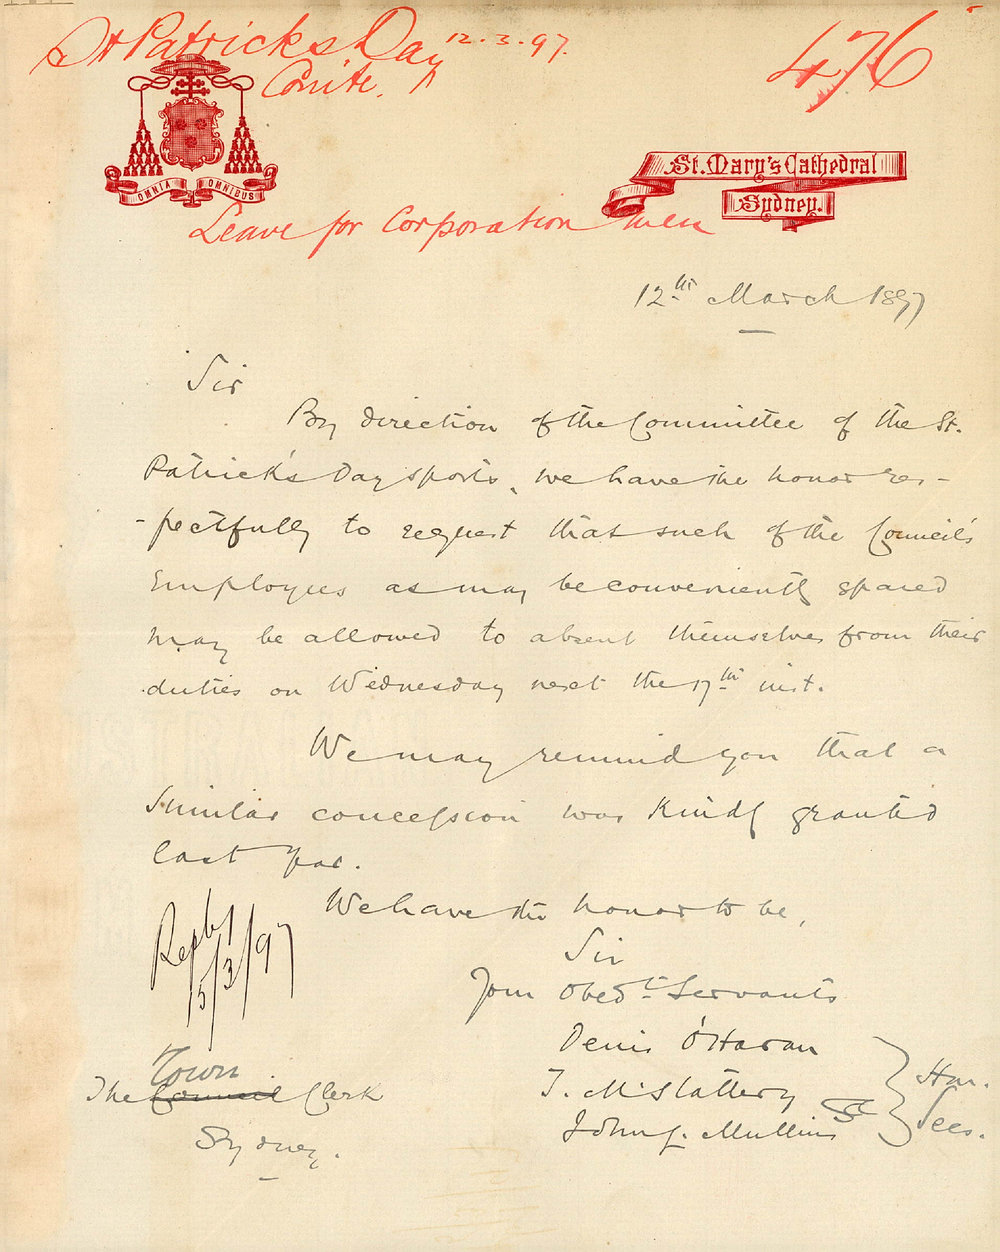 St Patricks Day 12.3.97.
Comte. 476
OMNIA OMNIBUS
St. Mary's Cathedral
Sydney.
Leave for Corporation men
12th March 1897
Sir
By direction of the Committee of the St.
Patrick's Day sports, we have the honor res-
-pectfully to request that such of the Council's
Employees as may be conveniently spared
may be allowed to absent themselves from their
duties on Wednesday next the 17th inst.
We may remind you that a
similar concession was kindly granted
last year.
We have the honor to be,
Sir
Your Obedt Servants
Denis O'Haran
T. M. Slattery
John J. Mullins
Hon.
Secs.
Reply
15/3/97
Town
The Council Clerk
Sydney.